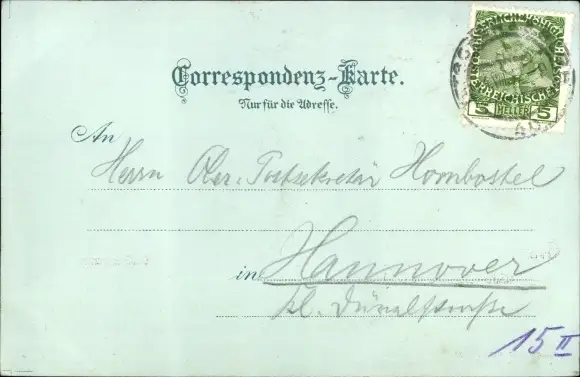 Correspondenz-Karte.
Nur für die Adresse.
5 HELLER 5
An
Herrn Ober-Postsekretär Hornbostel
in Hannover
kl. Düvelstraße
15 II